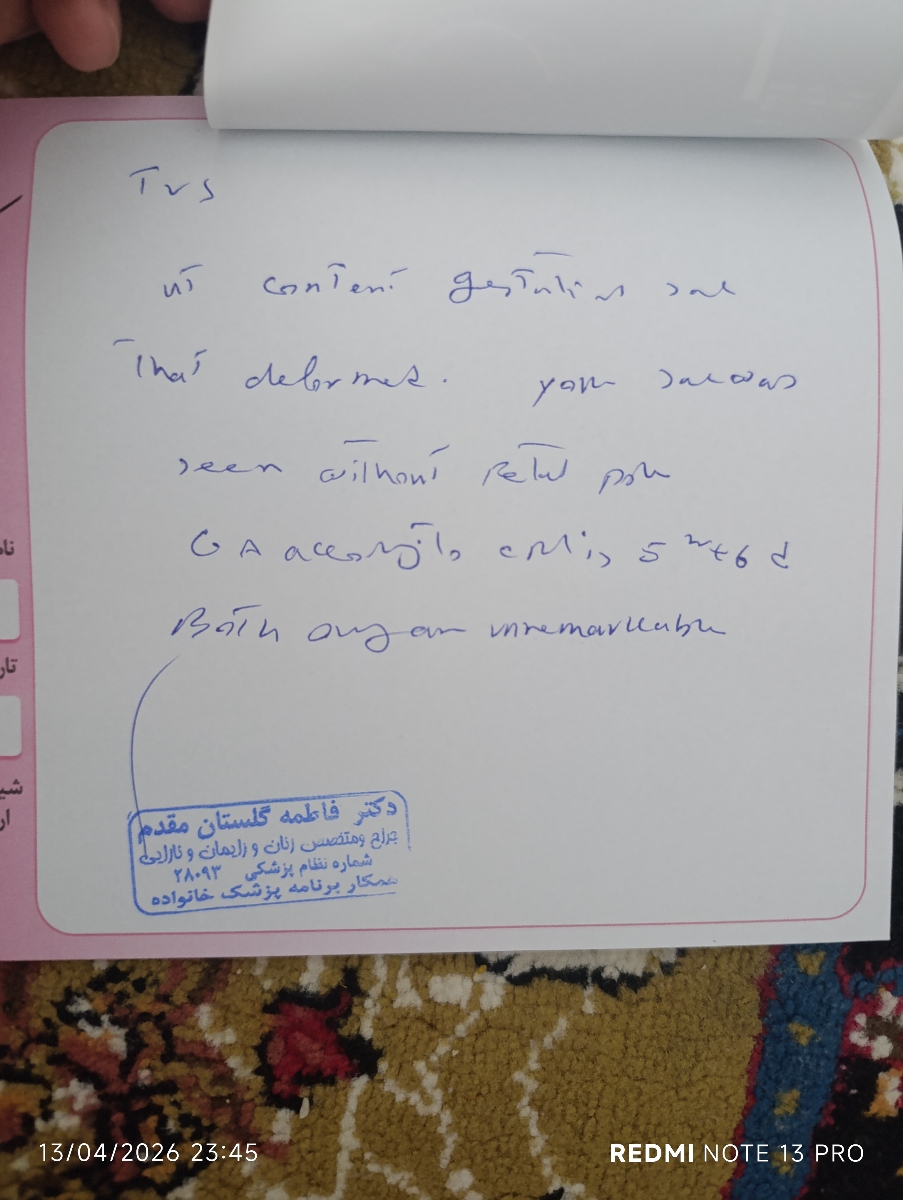 TVS
ut content gestation sac
That deformed. yolk sac was
seen without fetal pole
GA according to CRL is 5w+6d
Both organ unremarkable
دکتر فاطمه گلستان مقدم
جراح ومتخصص زنان و زایمان و نازایی
شماره نظام پزشکی ۲۸۰۹۳
همکار برنامه پزشک خانواده
نا
تار
شی
ار
13/04/2026 23:45
REDMI NOTE 13 PRO